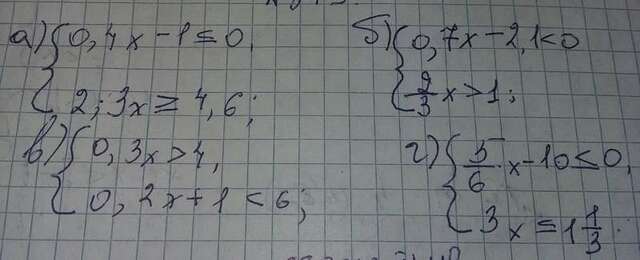 а) { 0,4x − 1 ≤ 0,
2,3x ≥ 4,6;
б) { 0,7x − 2,1 < 0
2/3 x > 1;
в) { 0,3x > 4,
0,2x + 1 < 6;
г) { 5/6 x − 10 ≤ 0,
3x ≤ 1 1/3.